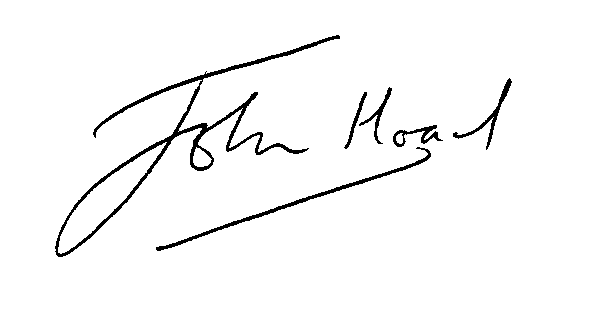 John Hoad